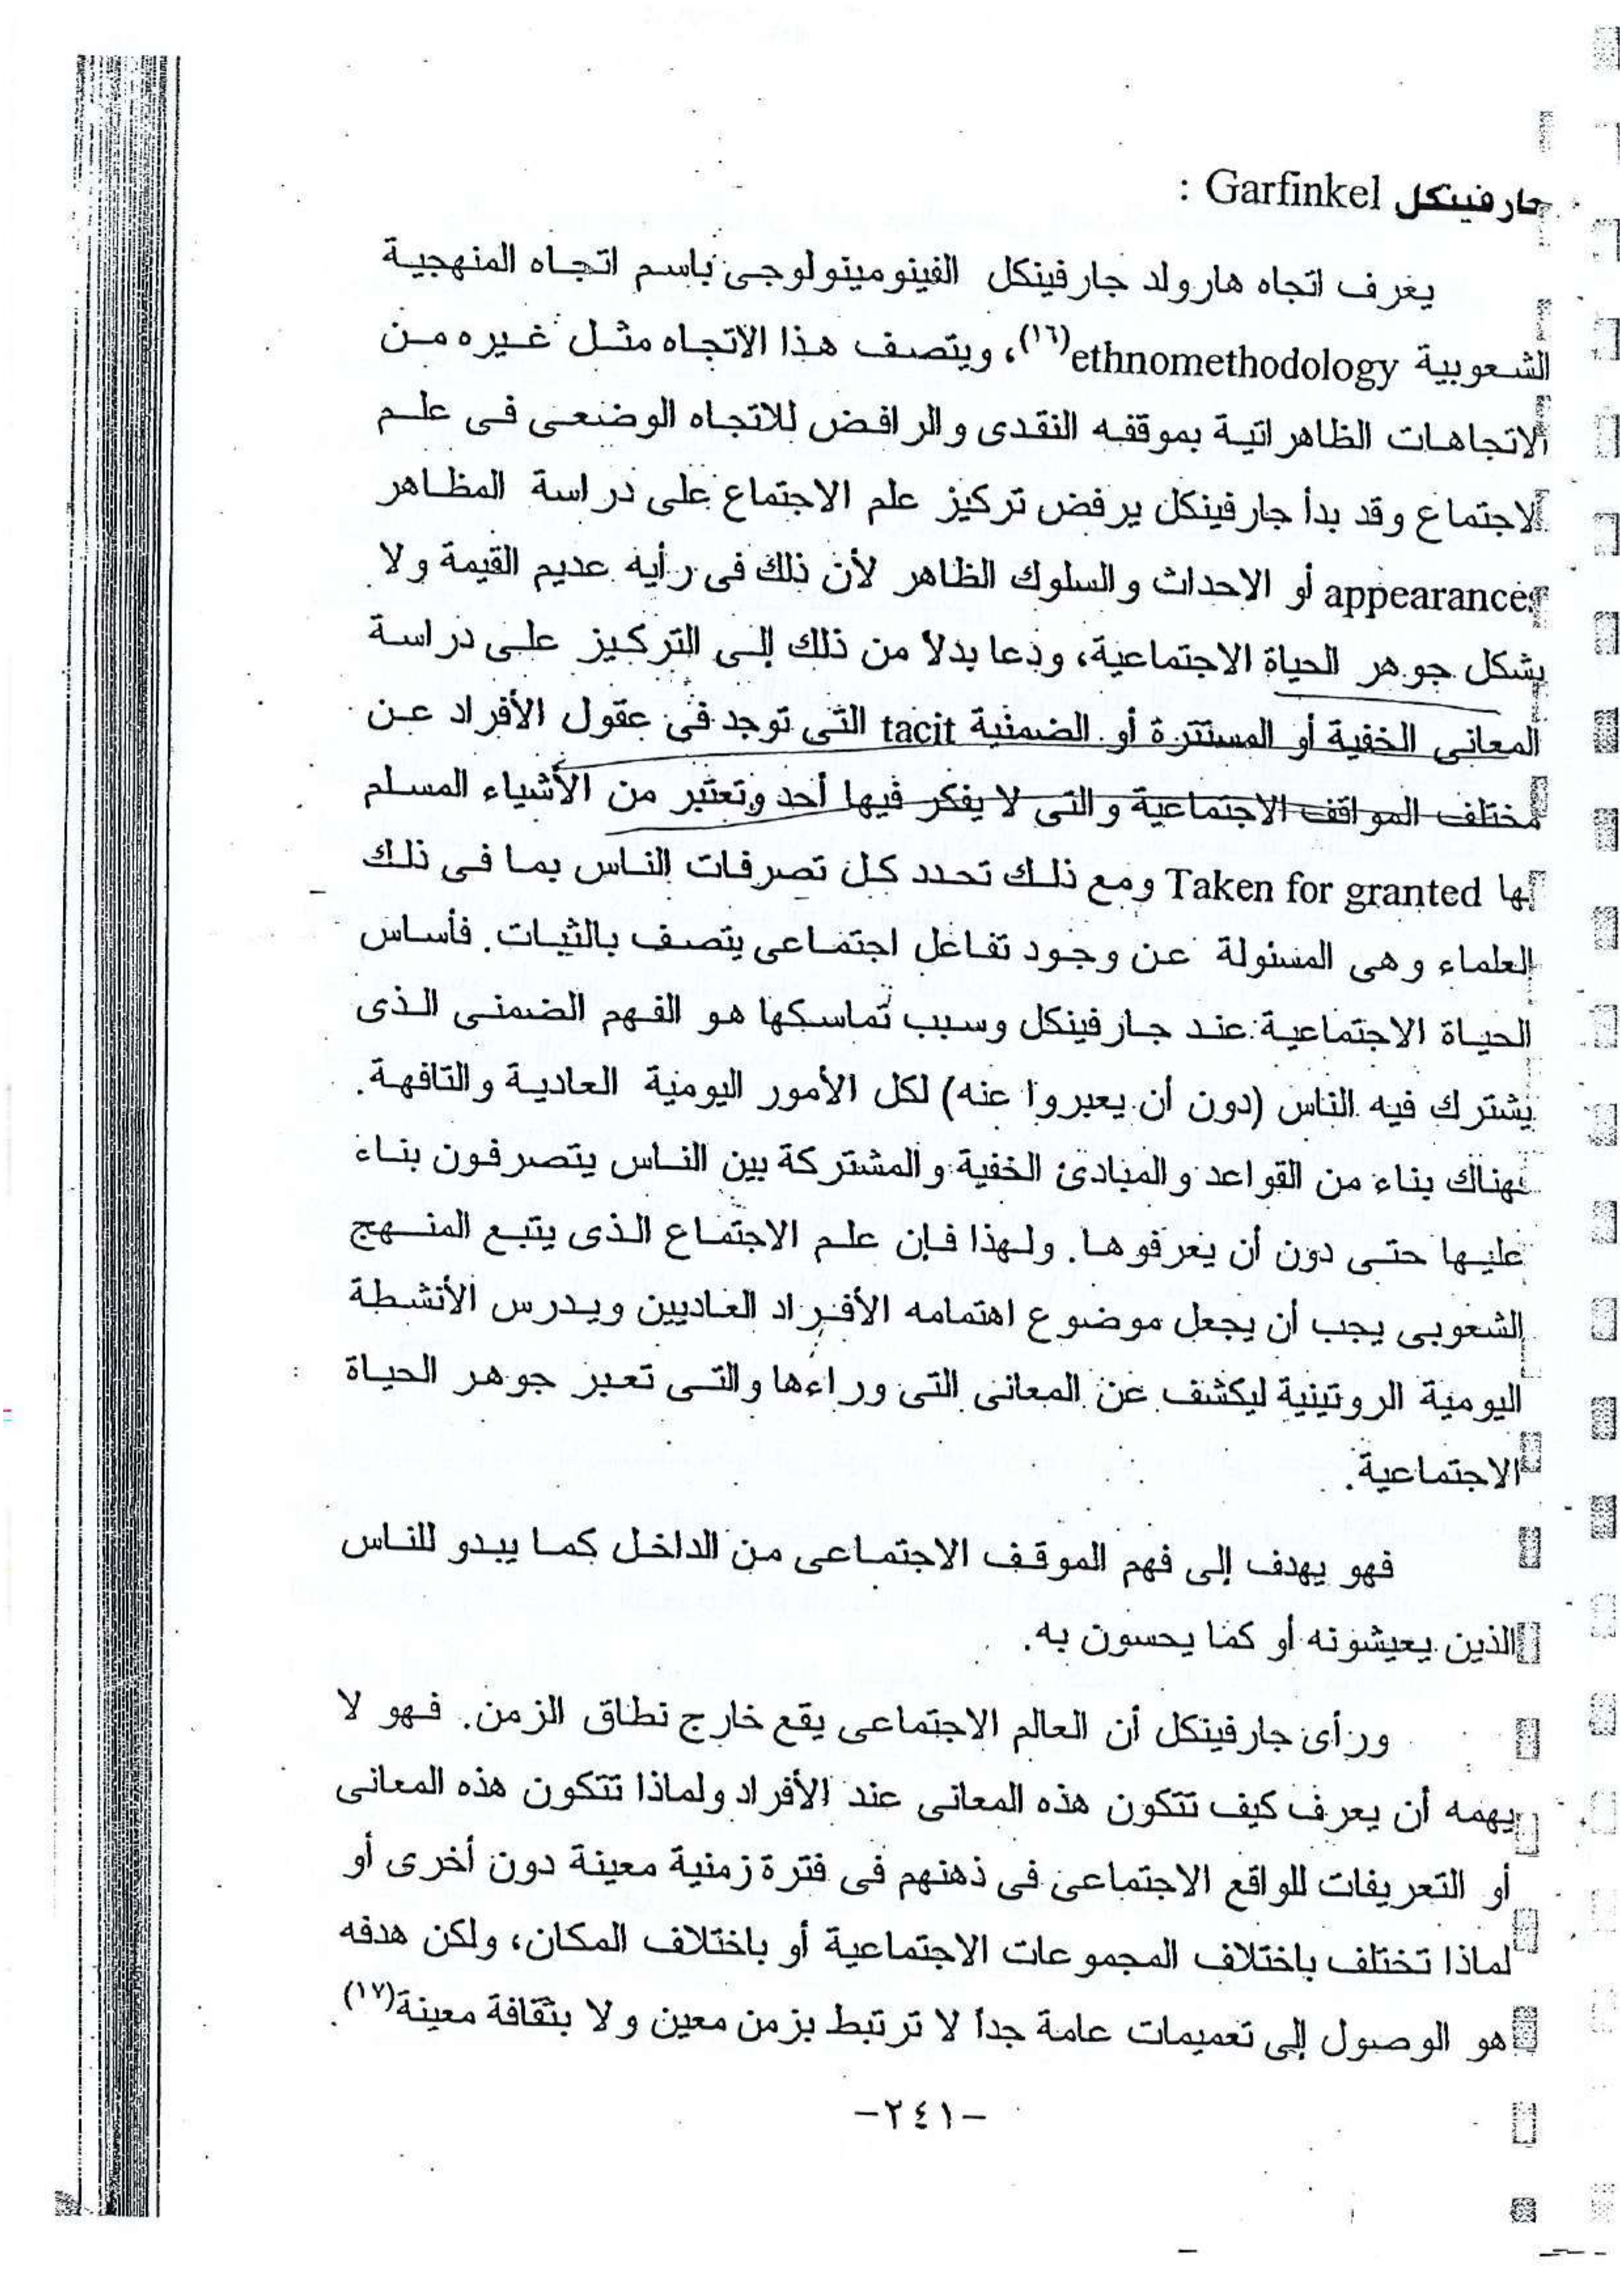 جارفينكل Garfinkel :
يعرف اتجاه هارولد جارفينكل الفينومينولوجى باسم اتجاه المنهجية
الشعوبية ethnomethodology(١٦)، ويتصف هذا الاتجاه مثل غيره من
الاتجاهات الظاهراتية بموقفه النقدى والرافض للاتجاه الوضعى فى علم
الاجتماع وقد بدأ جارفينكل يرفض تركيز علم الاجتماع على دراسة المظاهر
appearances أو الاحداث والسلوك الظاهر لأن ذلك فى رأيه عديم القيمة ولا
يشكل جوهر الحياة الاجتماعية، ودعا بدلا من ذلك إلى التركيز على دراسة
المعانى الخفية أو المستترة أو الضمنية tacit التى توجد فى عقول الأفراد عن
مختلف المواقف الاجتماعية والتى لا يفكر فيها أحد وتعتبر من الأشياء المسلم
بها Taken for granted ومع ذلك تحدد كل تصرفات الناس بما فى ذلك
العلماء وهى المسئولة عن وجود تفاعل اجتماعى يتصف بالثبات. فأساس
الحياة الاجتماعية عند جارفينكل وسبب تماسكها هو الفهم الضمنى الذى
يشترك فيه الناس (دون أن يعبروا عنه) لكل الأمور اليومية العادية والتافهة.
فهناك بناء من القواعد والمبادئ الخفية والمشتركة بين الناس يتصرفون بناء
عليها حتى دون أن يعرفوها. ولهذا فإن علم الاجتماع الذى يتبع المنهج
الشعوبى يجب أن يجعل موضوع اهتمامه الأفراد العاديين ويدرس الأنشطة
اليومية الروتينية ليكشف عن المعانى التى وراءها والتى تعبر جوهر الحياة
الاجتماعية.
فهو يهدف إلى فهم الموقف الاجتماعى من الداخل كما يبدو للناس
الذين يعيشونه أو كما يحسون به.
ورأى جارفينكل أن العالم الاجتماعى يقع خارج نطاق الزمن. فهو لا
يهمه أن يعرف كيف تتكون هذه المعانى عند الأفراد ولماذا تتكون هذه المعانى
أو التعريفات للواقع الاجتماعى فى ذهنهم فى فترة زمنية معينة دون أخرى أو
لماذا تختلف باختلاف المجموعات الاجتماعية أو باختلاف المكان، ولكن هدفه
هو الوصول إلى تعميمات عامة جداً لا ترتبط بزمن معين ولا بثقافة معينة(١٧).
-٢٤١-